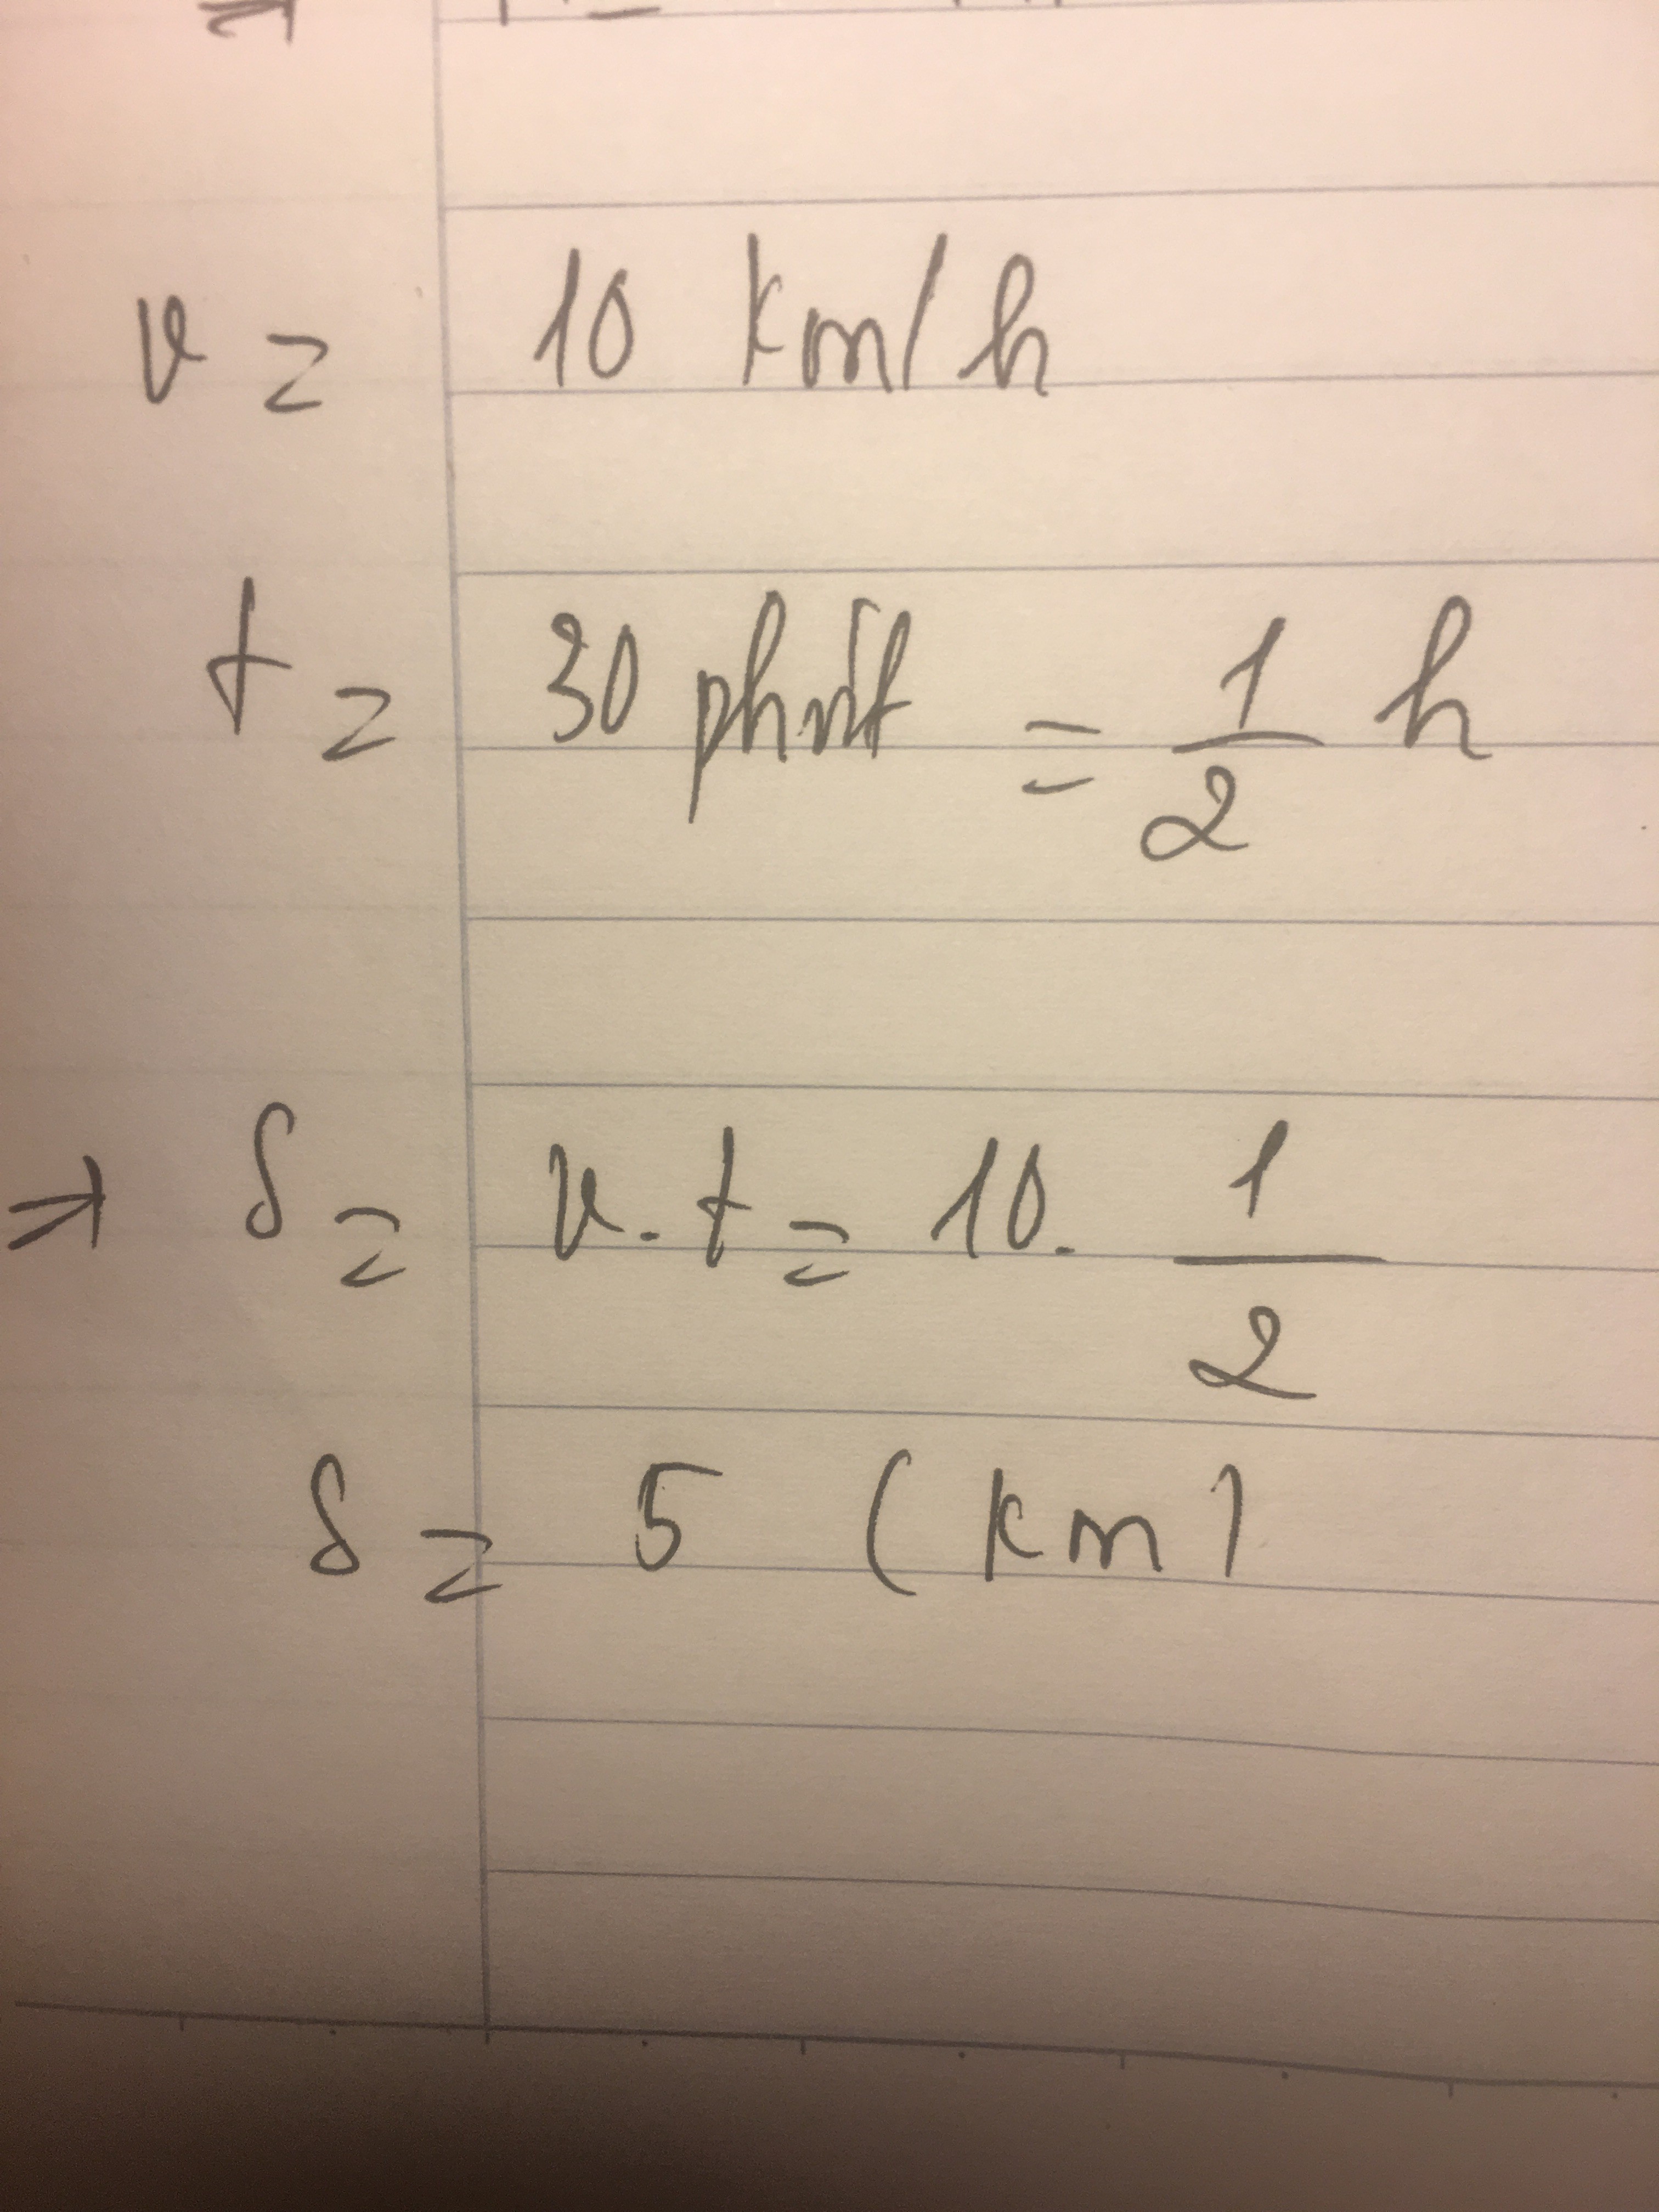 v = 10 km/h
t = 30 phút = 1/2 h
→ s = v.t = 10. 1/2
s = 5 (km)